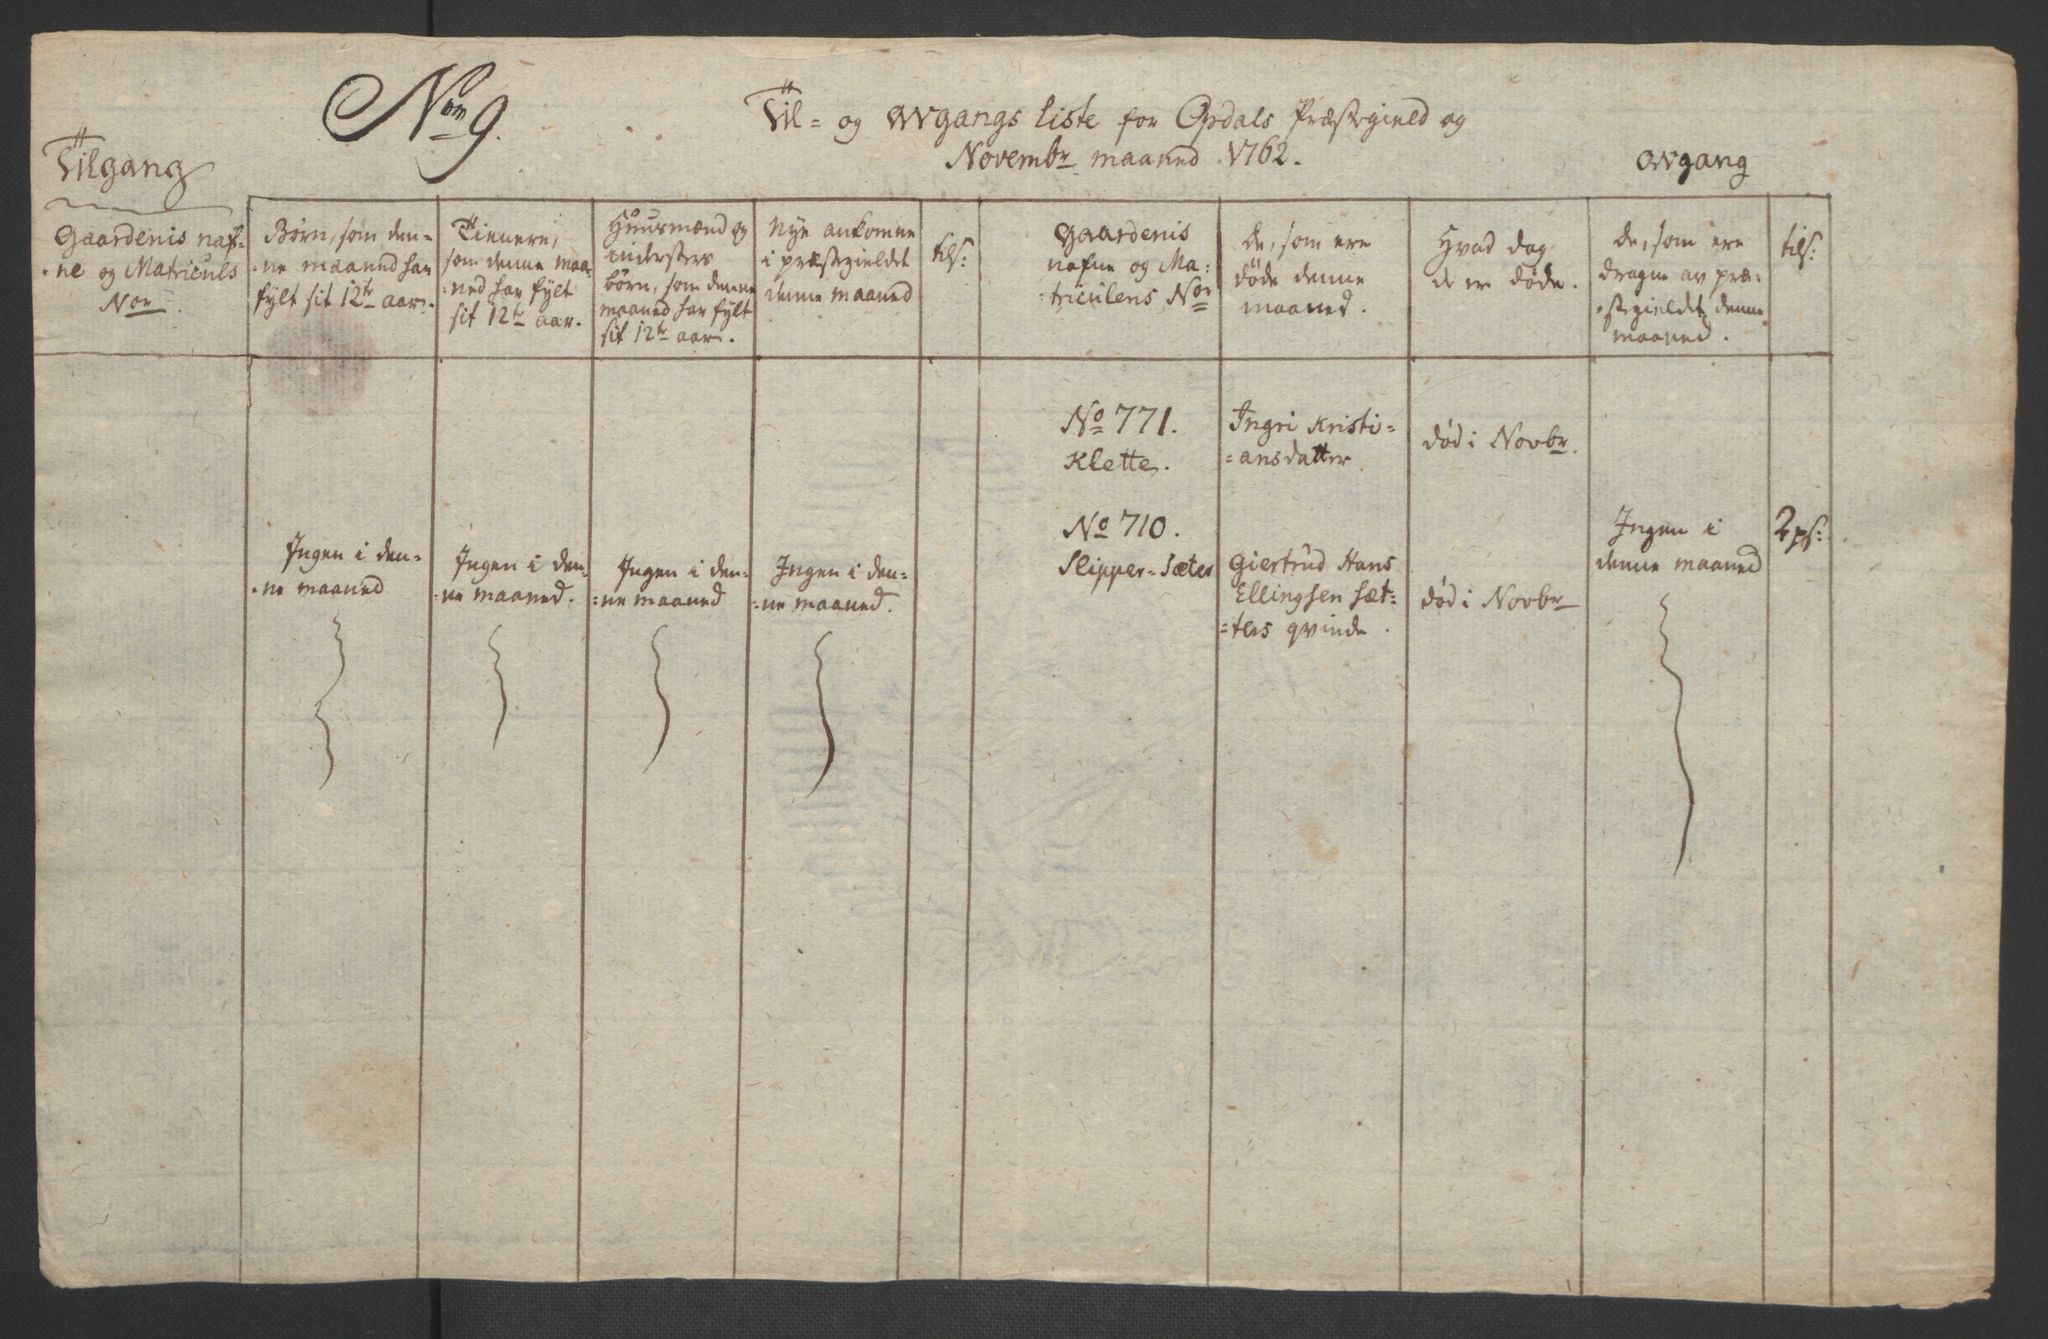 Nor 9.
Til= og avgangs liste for Opdals Præstegield og
Novembr maaned 1762.
Tilgang
avgang
Gaardenis naf=
=ne og Matriculs
Nor
Børn, som den=
=ne maaned har
fylt sit 12te aar.
Tienere,
som denne maa=
=ned har fylt
sit 12te aar.
Huusmænd og
indersters
børn, som denne
maaned har fylt
sit 12te aar.
Nye ankomne
i præstegieldet
denne maaned
tils:
Gaardenis
nafne og Ma=
=triculens Nor
De, som ere
døde denne
maaned.
Hvad dag
de er døde.
De, som ere
dragne av præ=
=stegieldet denne
maaned.
tils:
No 771.
Klette.
Ingri Kristi=
=ansdatter
død i Novbr.
No 710.
Slipper=Sæter
Giertrud Hans
Ellingsen Sæt=
=ters qvinde.
død i Novbr
Ingen i den=
=ne maaned
Ingen i den=
=ne maaned.
Ingen i den=
=ne maaned
Ingen i den=
=ne maaned.
Ingen i
denne maaned
2 ps: